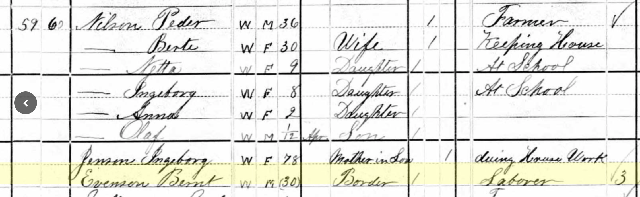 59 60 Nilson Peder W M 36 1 Farmer ✓
— Berte W F 30 Wife 1 Keeping House
— Netta W F 9 Daughter 1 At School
— Ingeborg W F 8 Daughter 1 At School
— Anna W F 2 Daughter 1
— Olaf W M 1/2 Apr Son 1
Jenson Ingeborg W F 78 Mother in Law 1 doing House Work
Evenson Bernt W M (30) Border 1 Laborer 3